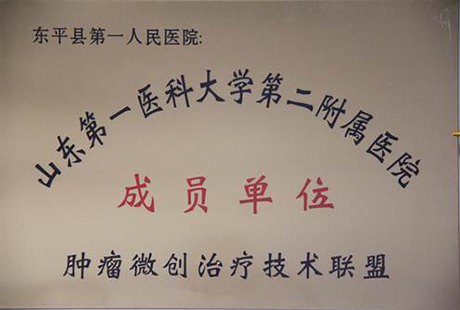 东平县第一人民医院:
山东第一医科大学第二附属医院
成员单位
肿瘤微创治疗技术联盟